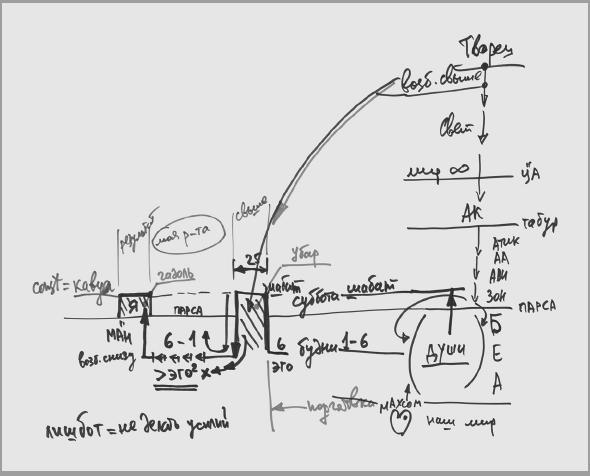 Творец
возб. свыше
Свет
мир ∞
ЦА
АК
табур
Атик
АА
АВИ
Зон
ПАРСА
Б
Е
А
души
Махсом
наш мир
результ
моя р-та
свыше
25
убар
гадоль
сост = кавуа
"Я"
ПАРСА
шабат
суббота шабат
МАН
6 - 1
возб. снизу
> эго² x
6
эго
будни 1-6
подготовка
лишбот = не делать усилий